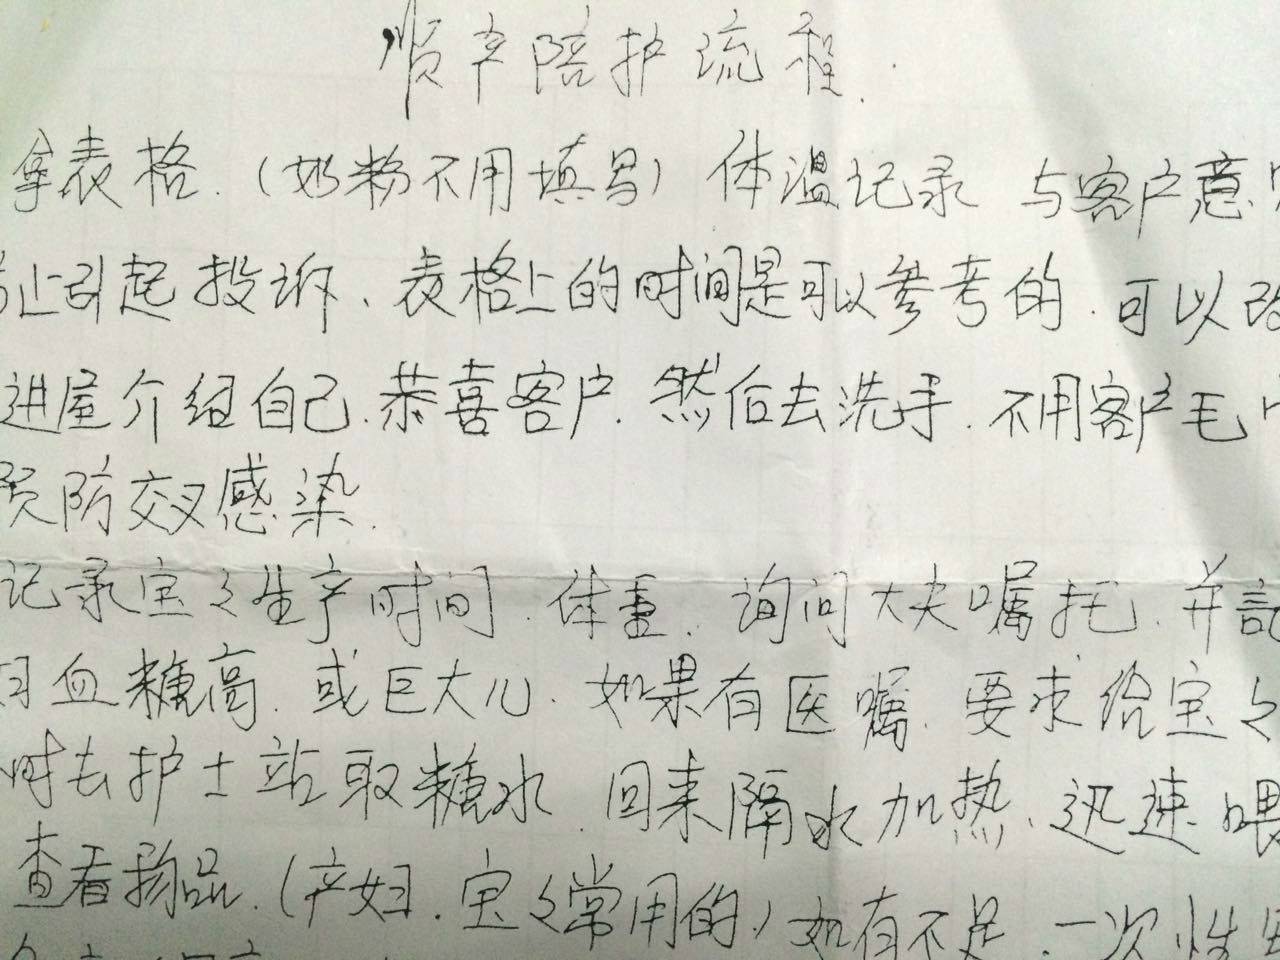 顺产陪护流程.
拿表格.(奶粉不用填写)体温记录 与客户意
止引起投诉、表格上的时间是可以参考的.可以改
进屋介绍自己.恭喜客户.然后去洗手.不用客户毛巾
预防交叉感染.
记录宝々生产时间.体重.询问大夫嘱托.并記
妇血糖高.或巨大儿.如果有医嘱.要求给宝々
时去护士站取糖水.回来隔水加热、迅速喂
查看物品.(产妇.宝々常用的)如有不足.一次性